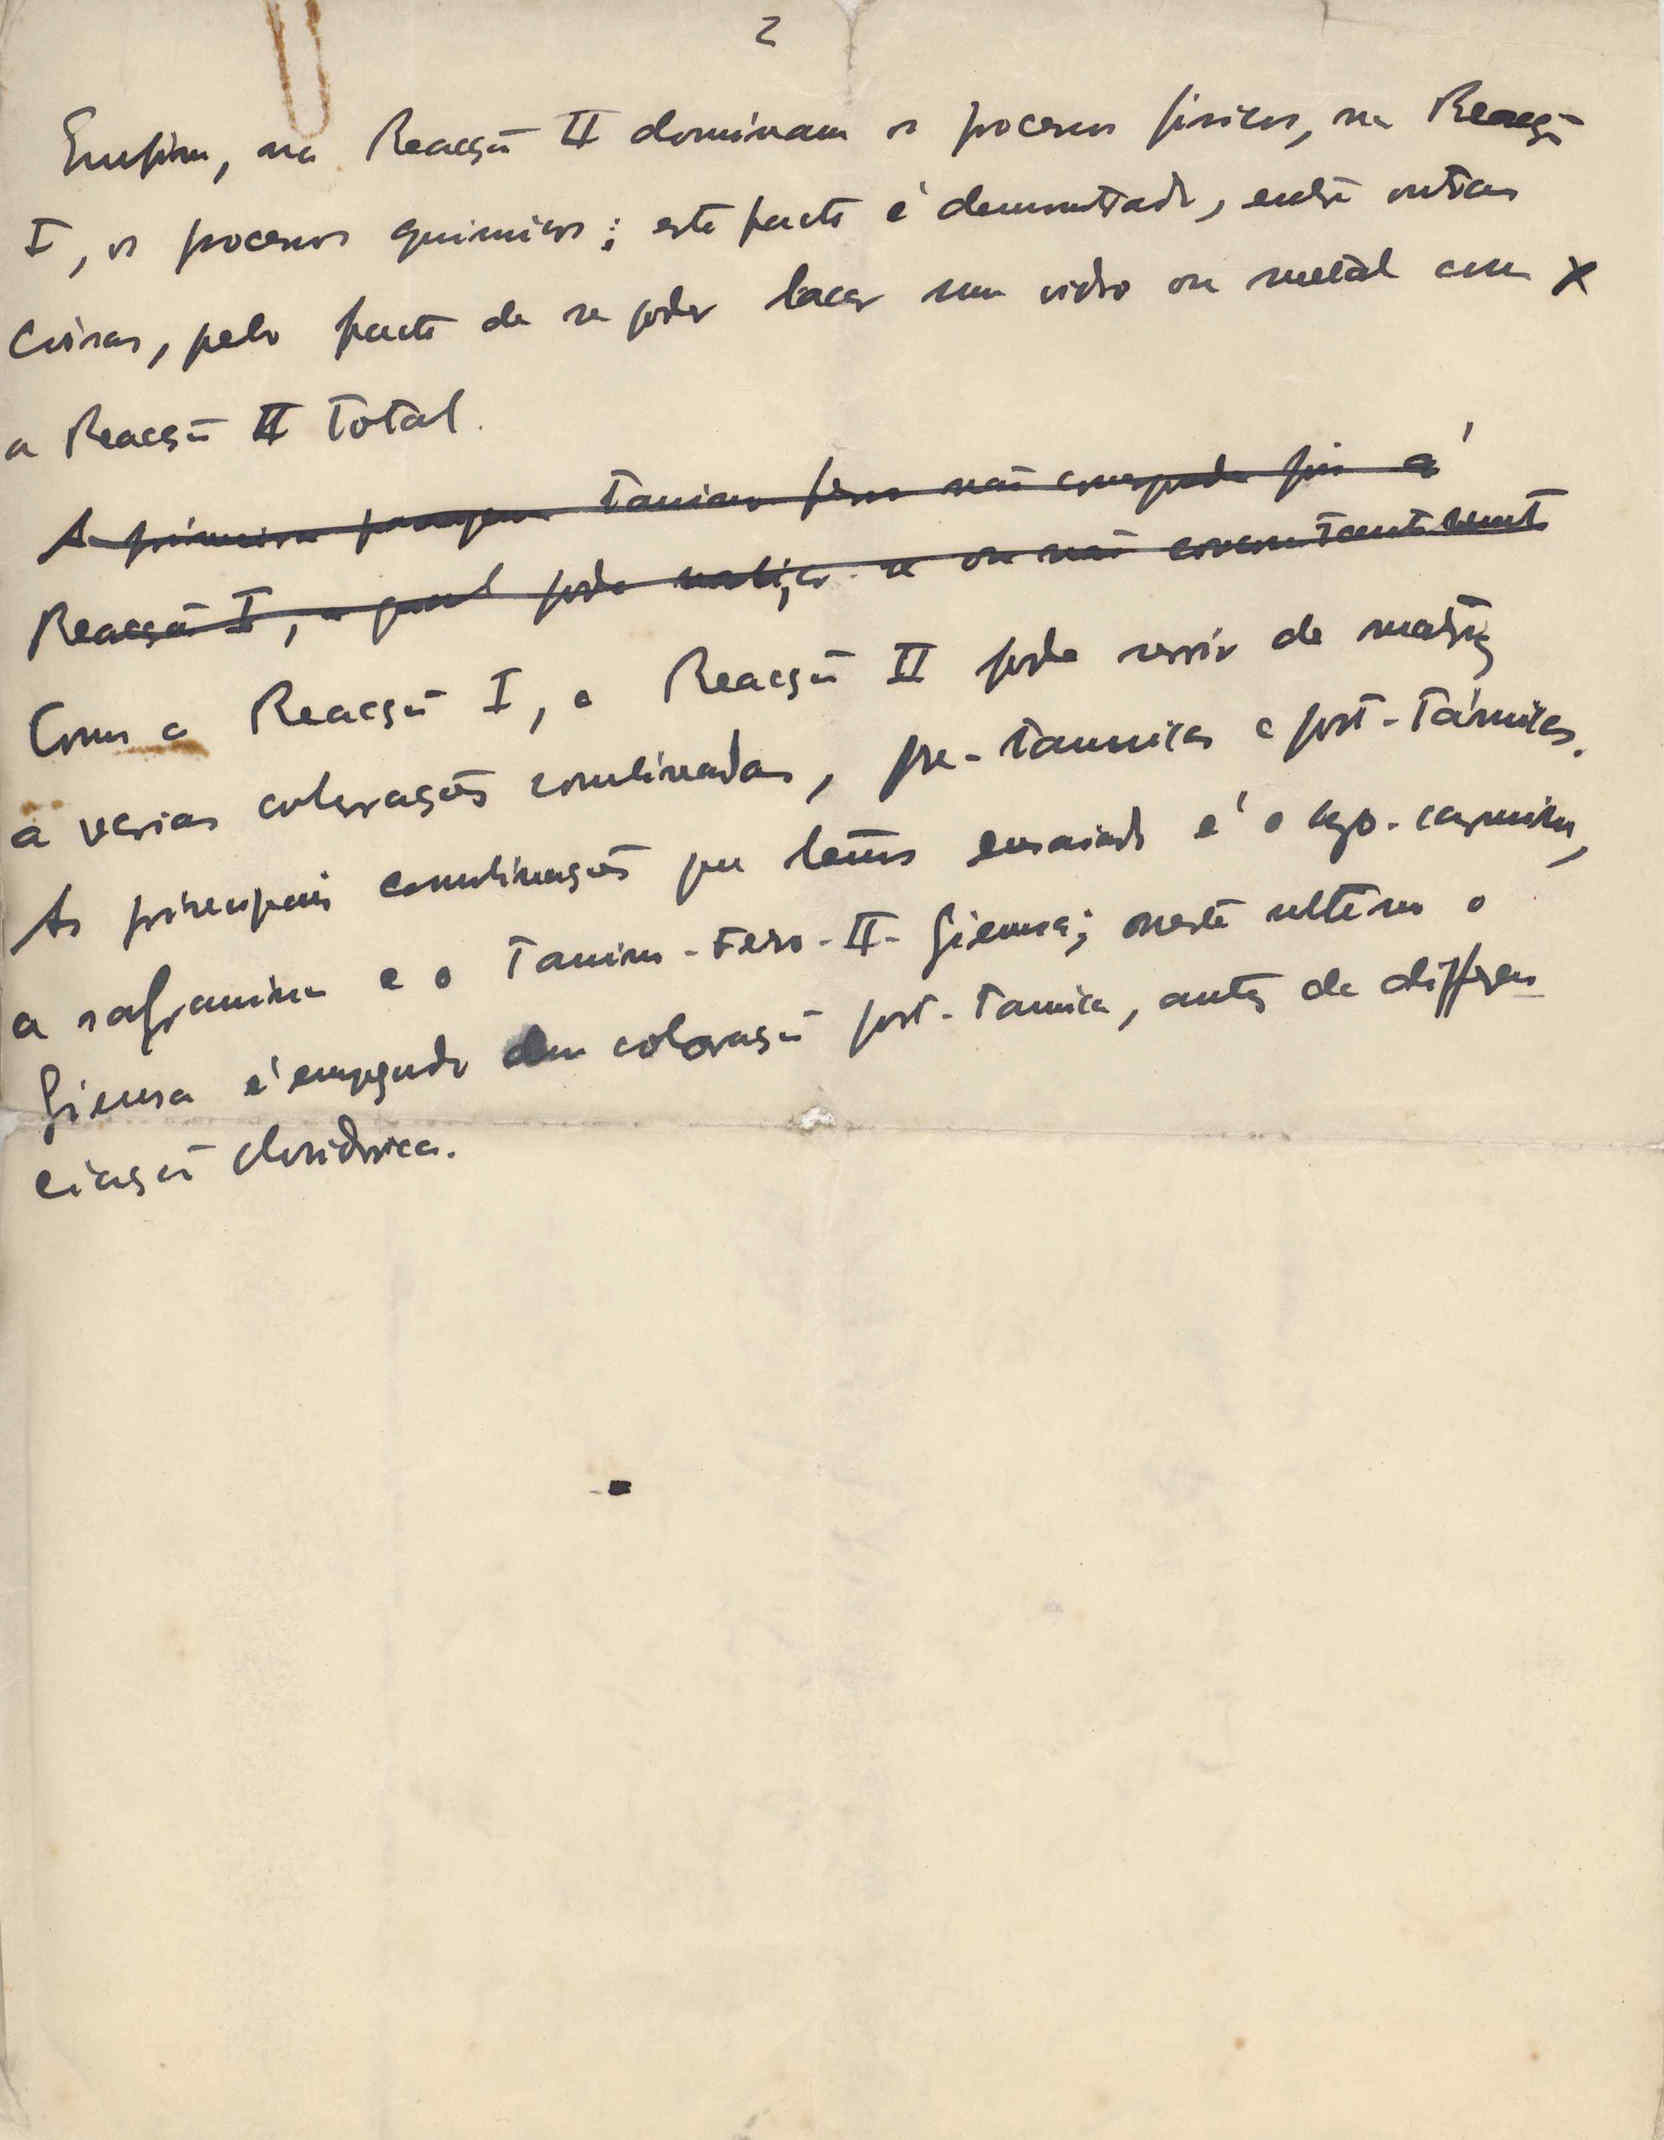 2
Enfim, na Reacção II dominam os processos fisicos, na Reacção
I, os processos quimicos; este facto é demonstrado, entre outras
coisas, pelo facto de se poder lacar um vidro ou metal com x
a Reacção II Total.
A primeira passagem Tanino ferro não corresponde pois á
Reacção I, a qual pode realizar-se ou não
Como a Reacção I, a Reacção II pode servir de matriz
a varias colorações combinadas, pre-tannicas e post-tánnicas.
As principais combinações que temos ensaiado é o -carmim,
a safranina e o Tanino-Ferro-II-Giemsa; neste ultimo o
Giemsa é empregado em coloração post-tannica, antes da differen
ciação cloridrica.